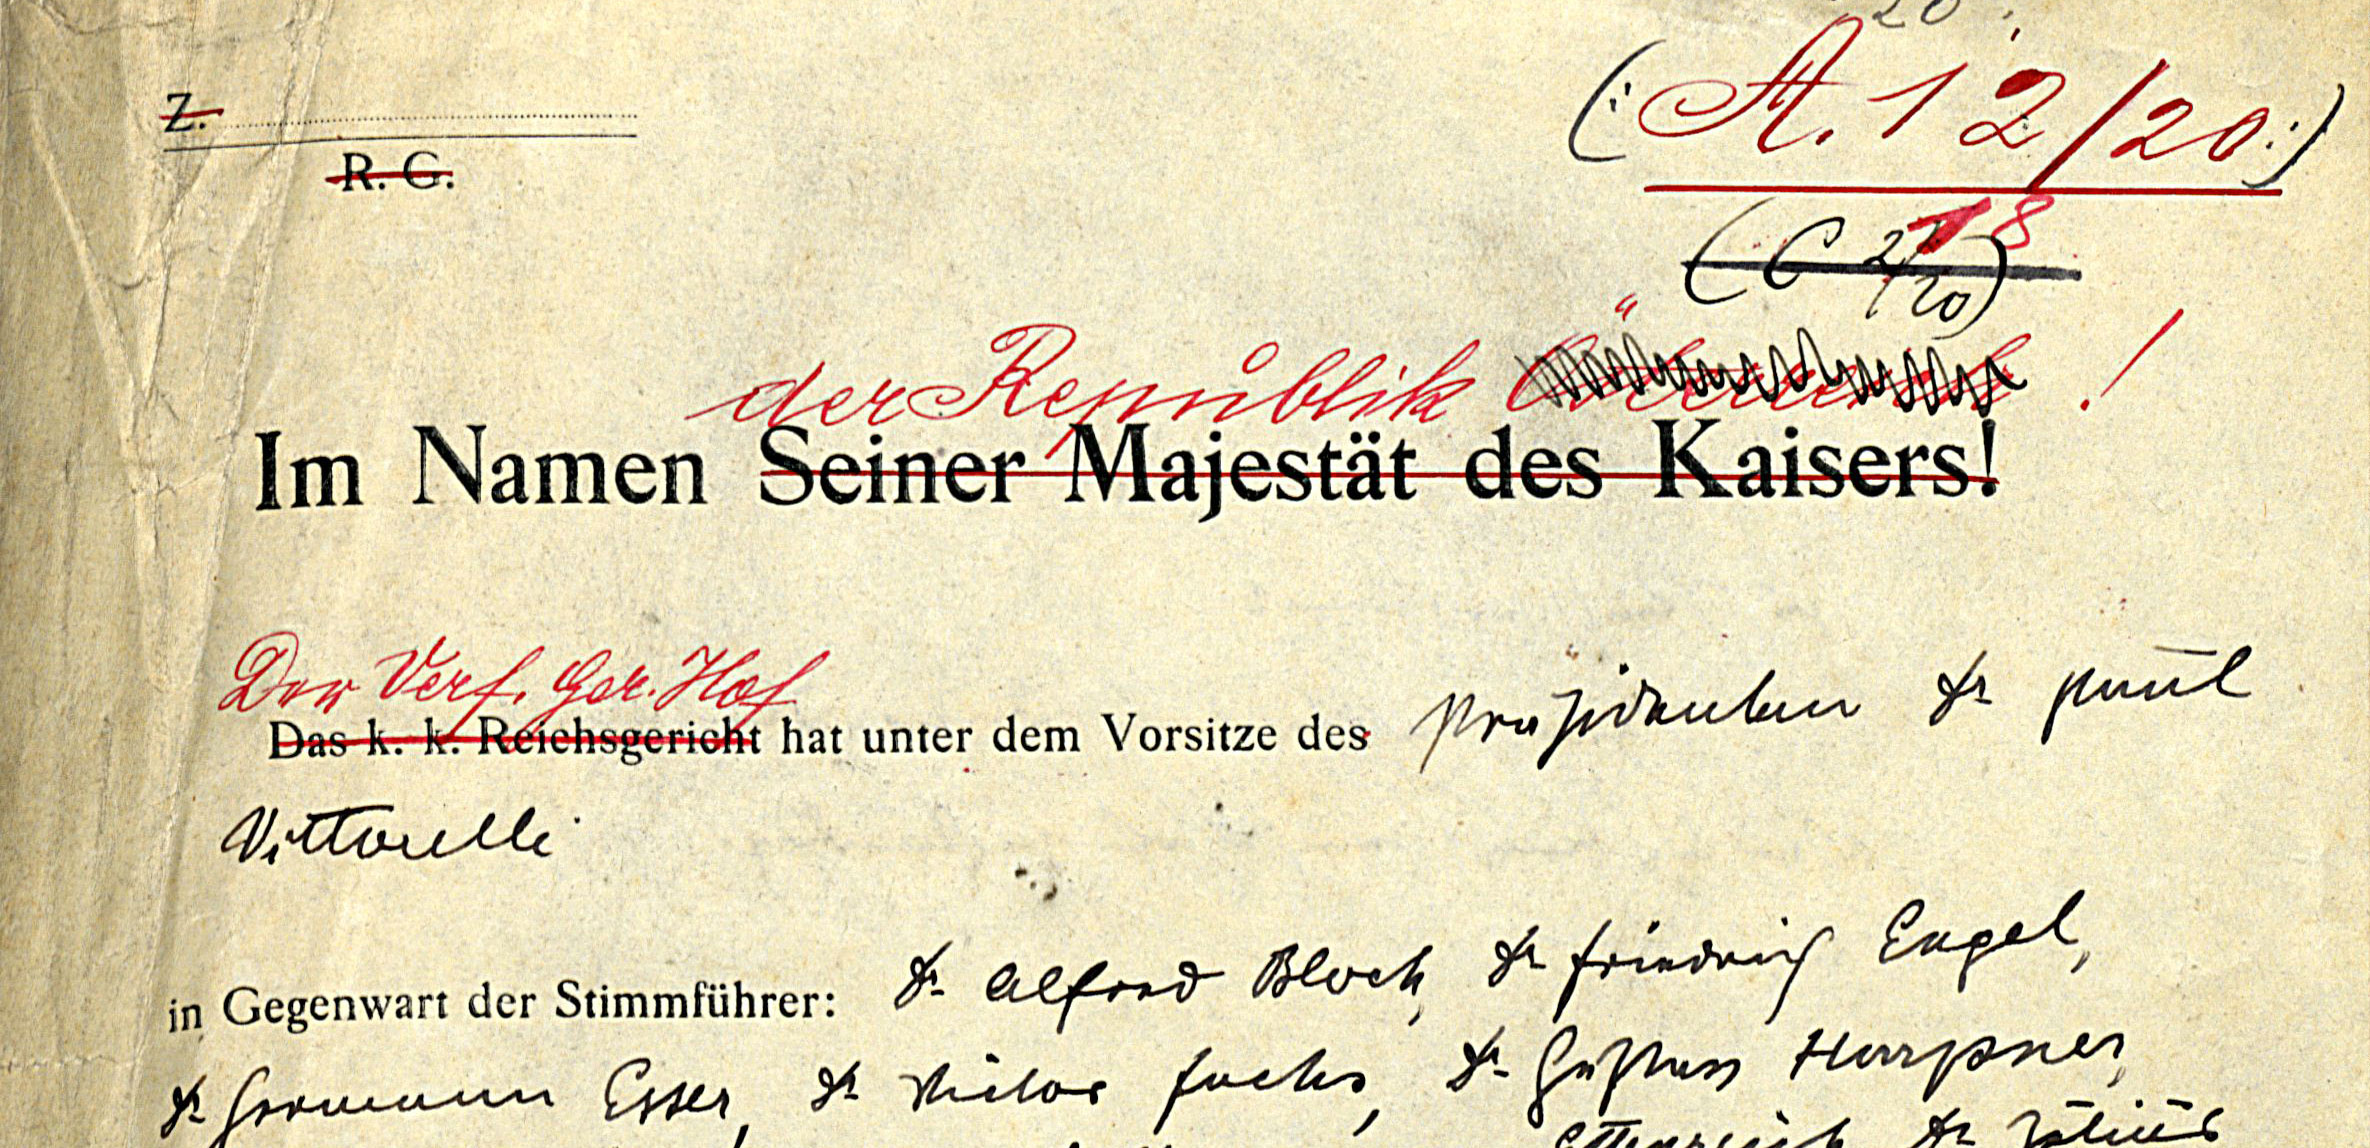 20
Z.
(: A. 12/20 :)
R. G.
(C 2/20) 18
der Republik !
Im Namen Seiner Majestät des Kaisers!
Der Verf. Ger. Hof
Das k. k. Reichsgericht hat unter dem Vorsitze des Präsidenten Dr Paul
Vittorelli
in Gegenwart der Stimmführer: Dr. Alfred Bloch, Dr Friedrich Engel,
Dr. Hermann Esser, Dr Viktor Fuchs, Dr. Gustav Harpner,
Dr. Julius